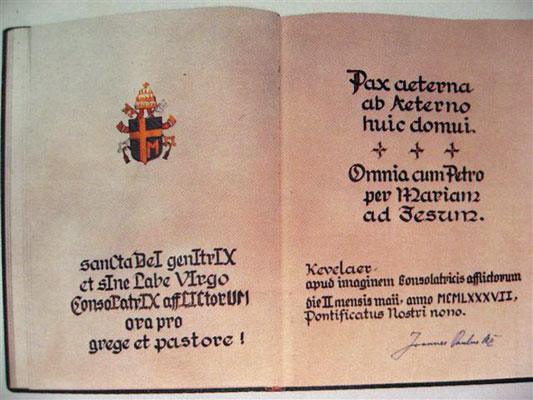 M
sanCta DeI genItrIX
et sIne Labe VIrgo
ConsoLatrIX affLICtorUM
ora pro
grege et pastore !
Pax aeterna
ab Aeterno
huic domui.
Omnia cum Petro
per Mariam
ad Jesum.
Kevelaer-
apud imaginem Consolatricis afflictorum
die II mensis maii, anno MCMLXXXVII,
Pontificatus Nostri nono.
Joannes Paulus II